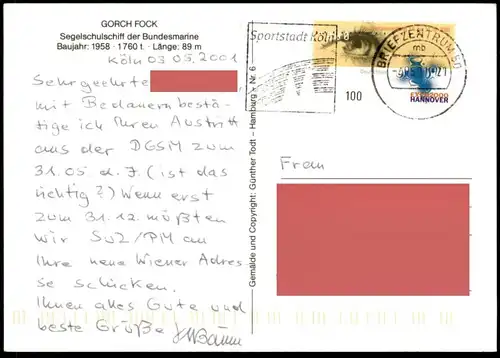 GORCH FOCK
Segelschulschiff der Bundesmarine
Baujahr: 1958 · 1760 t. · Länge: 89 m
Köln 03.05.2001
Sehr geehrte
mit Bedauern bestä-
tige ich Ihren Austritt
aus der DGSM zum
31.05. d. J. (ist das
richtig?) Wenn erst
zum 31.12. müßten
wir SuZ/PM an
Ihre neue Wiener Adres-
se schicken.
Ihnen alles Gute und
beste Grüße
Gemälde und Copyright: Günther Todt – Hamburg – Nr. 6
Sportstadt Köln
100
BRIEFZENTRUM 50
mb
EXPO2000
HANNOVER
Frau